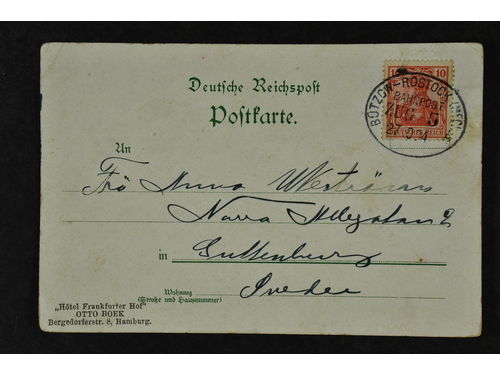 Deutsche Reichspost
Postkarte.
10 10
BÜTZOW-ROSTOCK
BAHNPOST
ZUG 5
DEUTSCHES REICH
An
Frö Anna
Norra Allégatan 2
in Guttenburg
Wohnung
(Straße und Hausnummer)
Sveden
„Hôtel Frankfurter Hof“
OTTO BOEK
Bergedorferstr. 8, Hamburg.